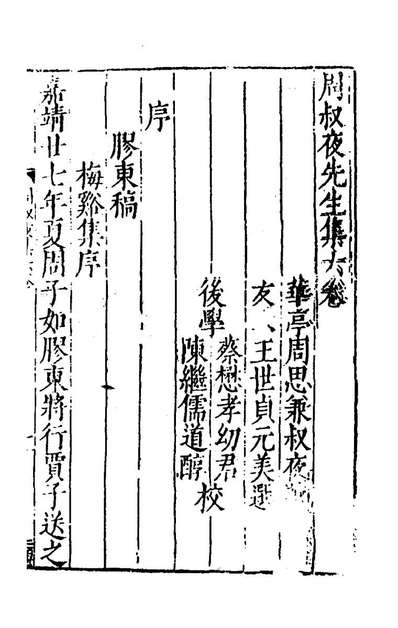 周叔夜先生集六卷
華亭周思兼叔夜
友人王世貞元美選
後學蔡懋孝幼君
陳繼儒道醇校
序
膠東稿
梅谿集序
嘉靖廿七年夏周子如膠東將行賈子送之